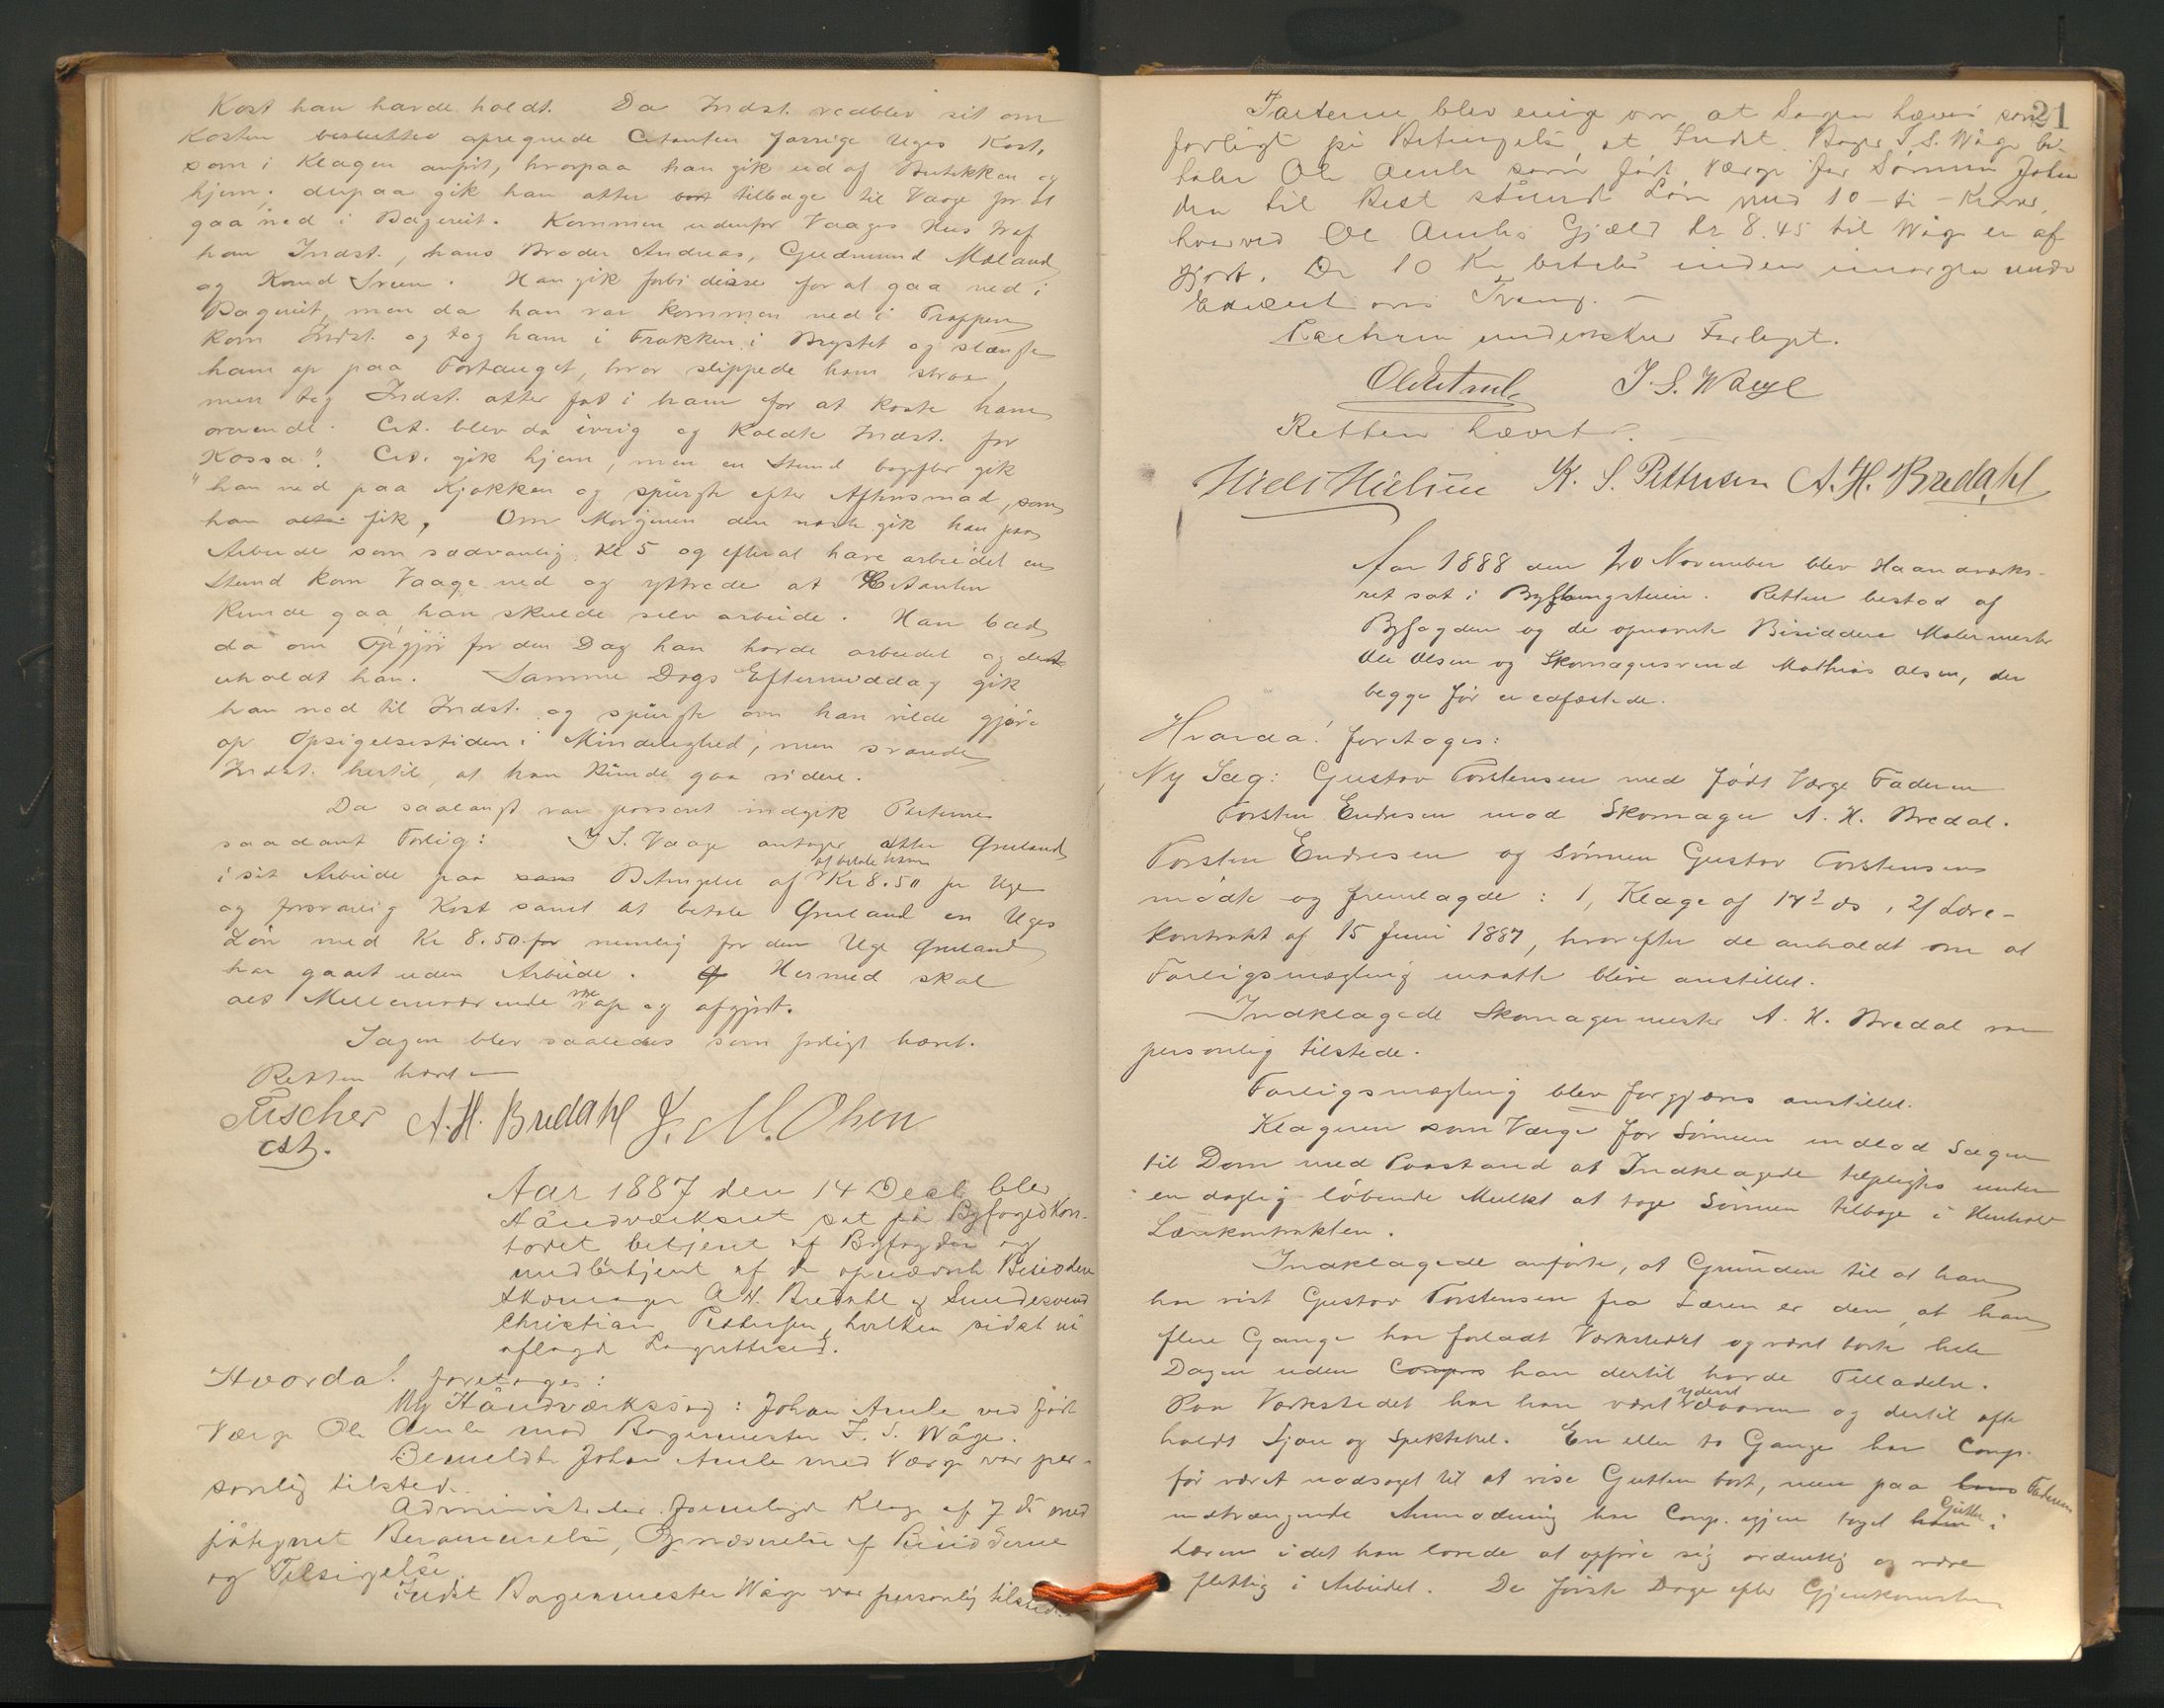 Kost han havde holdt. Da Indst. vedblev sit om
Kosten besluttes opregnede Citanten forrige Uges Kost,
som i Klagen anført, hvorpaa han gik ud af Butikken og
hjem; derpaa gik han atter bort tilbage til Vaage for at
gaa ned i Bageriet. Kommen udenfor Vaages Hus traf
han Indst., hans Broder Andreas, Gudmund Mæland
og Knud . Han gik forbi disse for at gaa ned i
Bageriet, men da han var kommen ned i Trappen
kom Indst. og tog ham i Frakken i Brystet og slængte
ham op paa Fortauget, hvor slippede ham strax,
men tog Indst. atter fat i ham for at kaste ham
overende. Cit. blev da ivrig og kaldte Indst. for
"Kossa". Cit. gik hjem, men en Stund bagefter gik
han ned paa Kjøkken og spurgte efter Aftensmad, som
han fik. Om Morgenen den næste gik han paa
Arbeide som sædvanlig Kl 5 og efterat have arbeidet en
Stund kom Vaage ned og yttrede at Citanten
kunde gaa, han skulde selv arbeide. Han bad
da om Opgjør for den Dag han havde arbeidet og dette
erholdt han. Samme Dags Eftermiddag gik
han ned til Indst. og spurgte om han vilde gjøre
op Opsigelsestiden i Mindelighed, men svarede
Indst. hertil, at han kunde gaa videre.
Da saalangt var passeret indgik Parterne
saadant Forlig: I. S. Vaage antager atter Grueland
i sit Arbeide paa som Betingelse af at betale ham Kr 8.50 pr Uge
og forsvarlig Kost samt at betale Grueland en Uges
Løn med Kr 8.50 for nemlig for den Uge Grueland
har gaaet uden Arbeide. Og Hermed skal
alt Mellemværende være op og afgjort.
Sagen blev saaledes som forligt hævet.
Retten hævet
Fischer A. H. Bredahl J. M. Olsen
cst.
Aar 1887 den 14 Decb blev
Håndværksret sat på Bygfogedkon-
toret betjent af Byfogden og
medbetjent af de opnævnte Bisiddere
Skomager A. H. Bredahl og Smedesvend
Christian Pettersen, hvilken sidst nu
aflagde Lagrettesed.
Hvorda! foretoges:
Ny Håndværkssag: Johan Amle ved født
Værge Ole Amle mod Bagermester I. S. Wåge.
Bemeldte Johan Amle med Værge var per-
sonlig tilstede.
Administrator fremlagde Klage af 7 ds med
påtegnet Berammelse, Opnævnelse af Bisidderne
og Tilsigelse.
Indst Bagermester Wåge var personlig tilstede.
21
Parterne blev enige om at Sagen hæves som
forligt på Betingelse at Indst. Bager I. S. Wåge be-
taler Ole Amle som født Værge for Sønnen Johan
den til Rest stående Løn med 10 - ti - Kroner,
hvorved Ole Amles Gjæld Kr 8.45 til Wåge er af
gjort. De 10 Kr betales inden imorgen under
Execut om Tvang. —
Parterne underskrev Forliget.
Ole Amle I. S. Waage
Retten hævet. —
Niels Nielsen K. S. Pettersen A. H. Bredahl
Aar 1888 den 20 November blev Haandværks-
ret sat i Bythingstuen. Retten bestod af
Byfogden og de opnævnte Bisiddere Malermester
Ole Olsen og Skomagersvend Mathias Olsen, der
begge før er edfæstede.
Hvorda! foretoges:
Ny Sag: Gustav Torstensen med født Værge Faderen
Torsten Endresen mod Skomager A. H. Bredal.
Torsten Endresen og Sønnen Gustav Torstensen
mødte og fremlagde: 1, Klage af 17de ds, 2/ Lære-
kontrakt af 15 Juni 1887, hvorefter de anholdt om at
Forligsmægling maatte blive anstillet.
Indklagede Skomagermester A. H. Bredal var
personlig tilstede.
Forligsmægling blev forgjæves anstillet.
Klageren som Værge for Sønnen indlod Sagen
til Dom med Paastand at Indklagede tilpligtes under
en daglig løbende Mulkt at tage Sønnen tilbage i Henhold
Lærekontrakten.
Indklagede anførte, at Grunden til at han
har vist Gustav Torstensen fra Læren er den, at han
flere Gange har forladt Værkstedet og været borte hele
Dagen uden Compos han dertil havde Tilladelse.
Paa Værkstedet har han været yderst doven og dertil ofte
holdt Sjau og Spektakel. En eller to Gange har Comp.
før været nødsaget til at vise Gutten bort, men paa hans Faderens
indtrængende Anmodning har Comp. igjen taget ham Gutten i
Læren idet han lovede at opføre sig ordentlig og være
flittig i Arbeidet. De første Dage efter Gjenkomsten